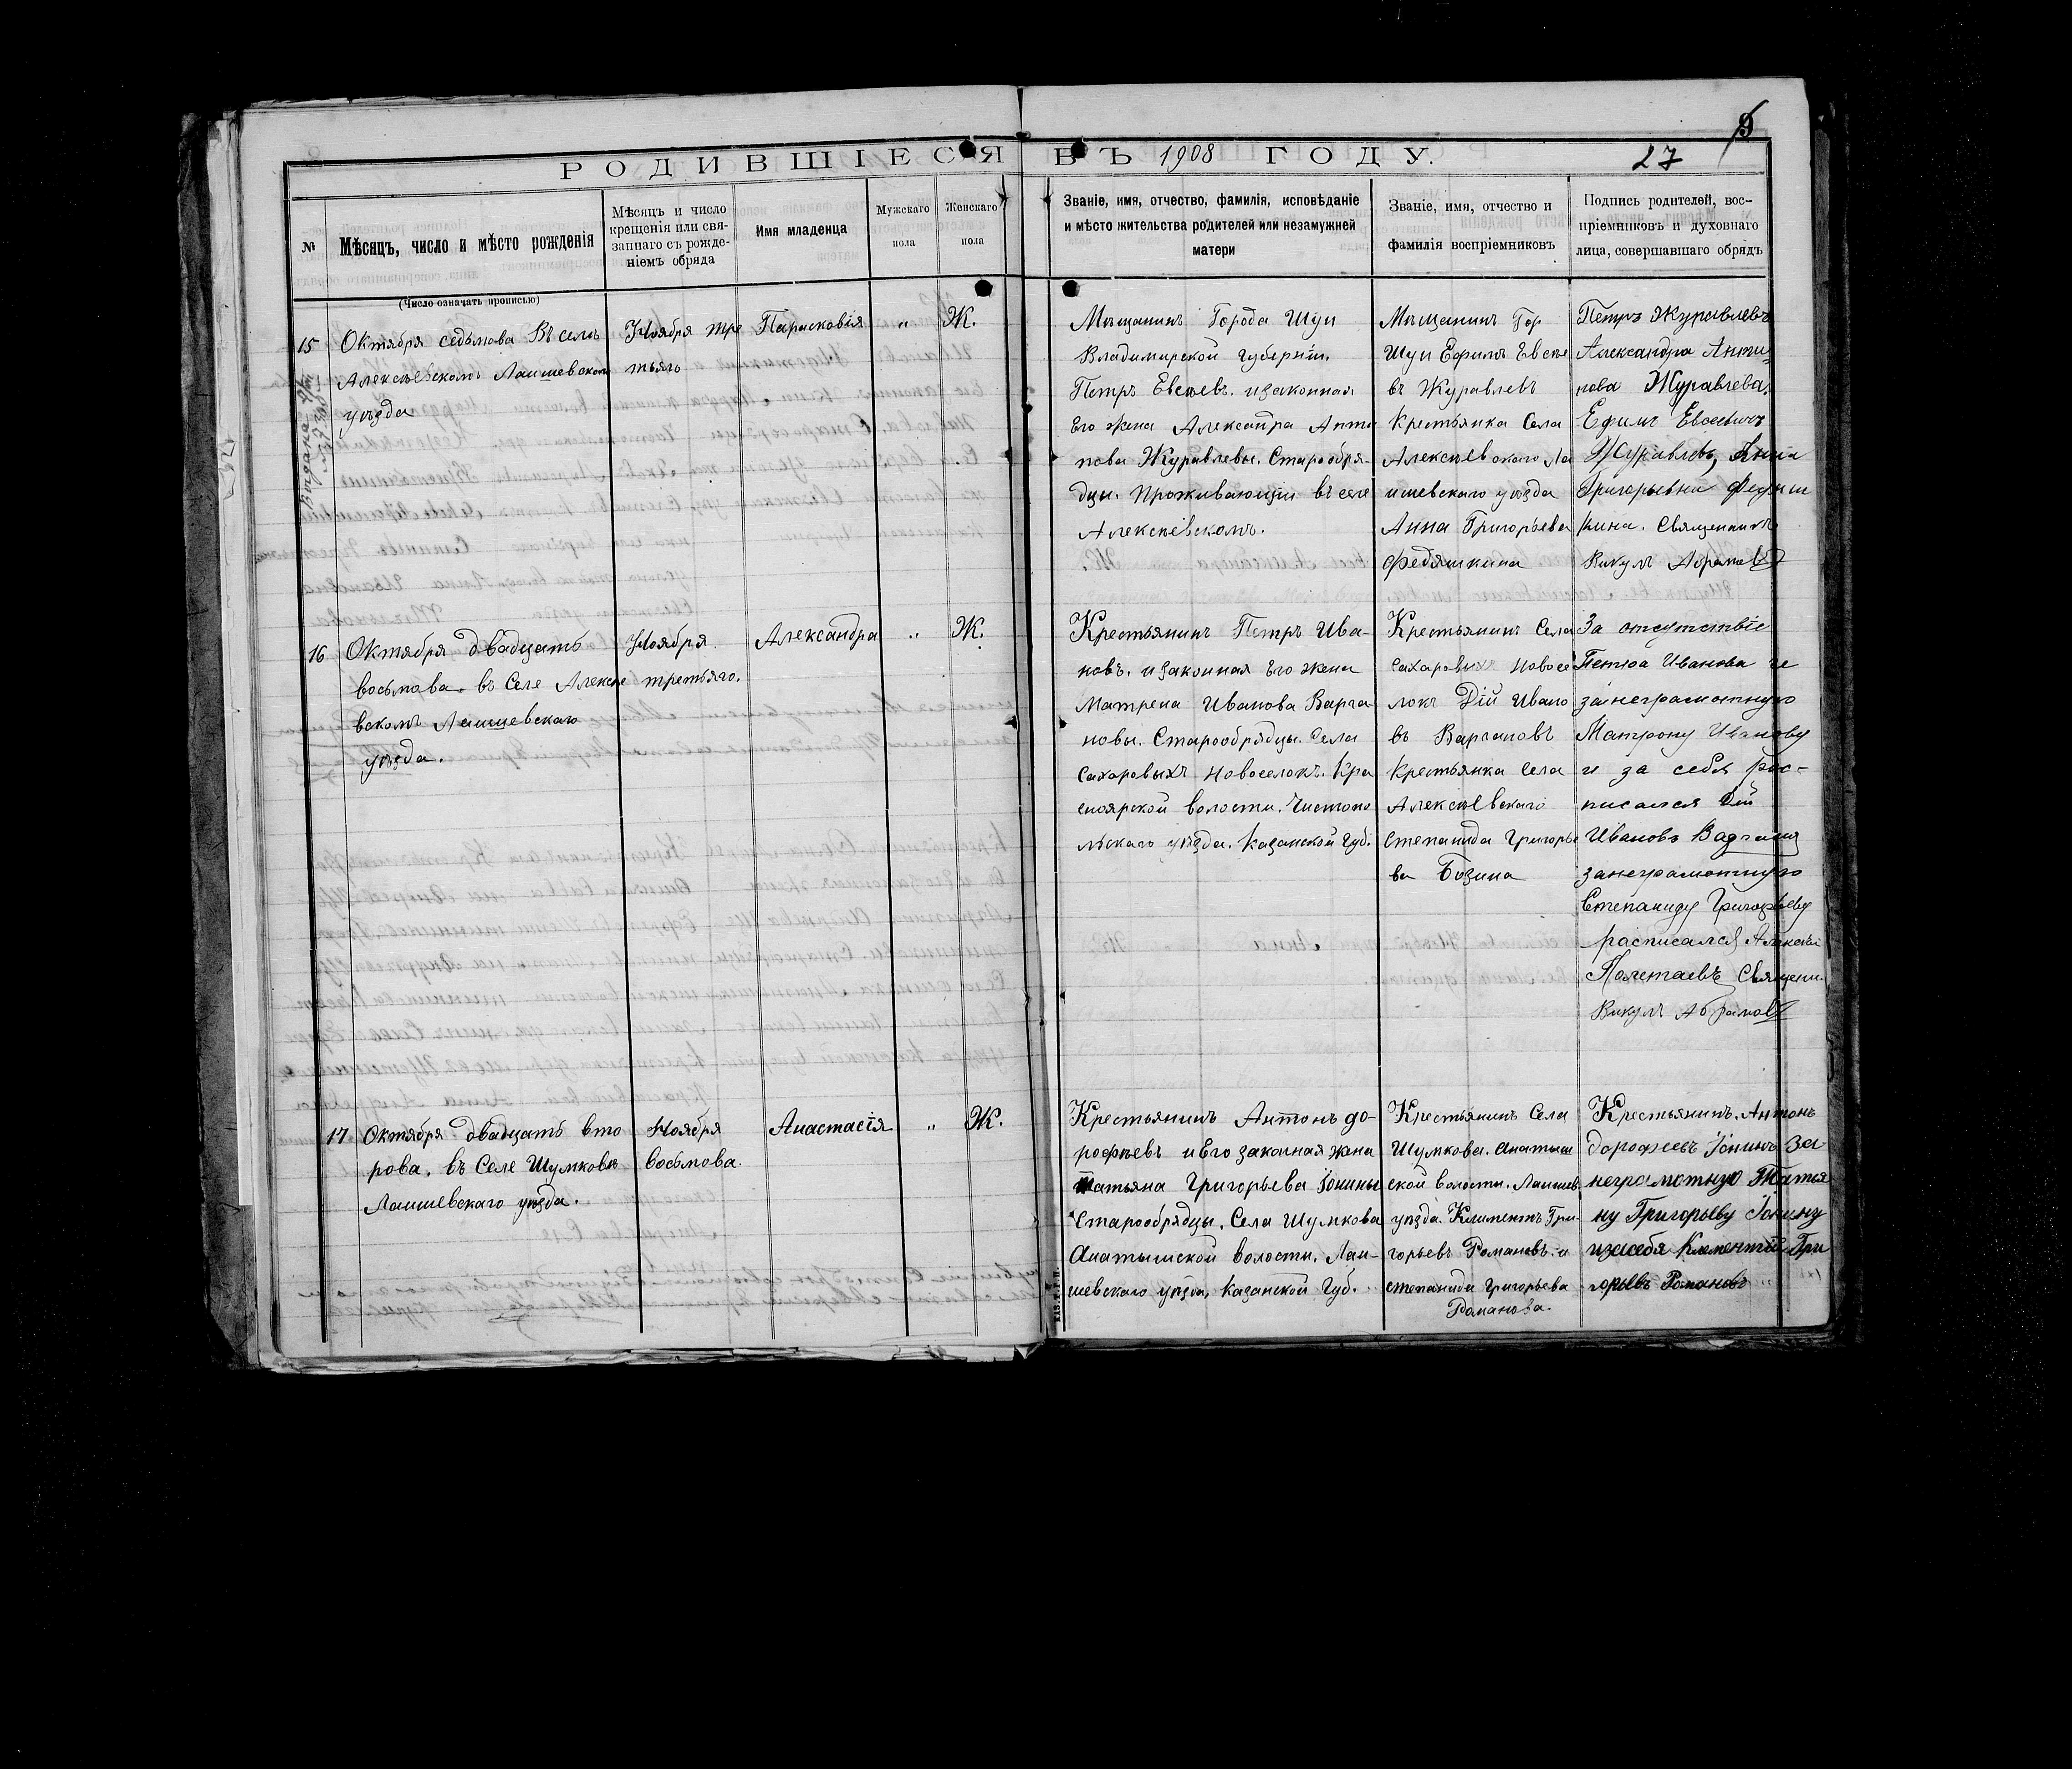 РОДИВШІЕСЯ ВЪ 1908 ГОДУ.
27
№
Мѣсяцъ, число и мѣсто рожденія
(Число означать прописью)
Мѣсяцъ и число
крещенія или свя-
заннаго съ рожде-
ніемъ обряда
Имя младенца
Мужскаго
пола
Женскаго
пола
Званіе, имя, отчество, фамилія, исповѣданіе
и мѣсто жительства родителей или незамужней
матери
Званіе, имя, отчество и
фамилія воспріемниковъ
Подпись родителей, вос-
пріемниковъ и духовнаго
лица, совершавшаго обрядъ
15
Октября седьмова Въ селѣ
Алексѣевскомъ Лаишевском
уѣзда
Ноября тре
тьяго
Парасковія
"
Ж.
Мѣщанинъ Города Шуи
Владимирской губерніи.
Петръ Евсѣевъ. и законная
Его жена Александра Анти
пова Журавлевы. Старообря-
дцы. Проживающіи въ селе
Алексѣевскомъ.
Мѣщанинъ Гор
Шуи Ефимъ Евсѣе
въ Журавлевъ
Крестьянка Села
Алексѣевскаго Ла
ишевскаго уѣзда
Анна Григорьева
Федяшкина
Петръ Журавлевъ
Александра Анти-
пова Журавлева.
Ефимъ Евсевичъ
Журавлевъ, Анна
Григорьевна Федяш
кина. Священникъ
Викулъ Абрамовъ
16
Октября двадцать
восьмова. въ Селе Алексѣе
вскомъ Лаишевскаго
уѣзда.
Ноября
третьяго.
Александра
"
Ж.
Крестьянинъ Петръ Ива-
новъ. и законная Его жена
Матрена Иванова Варга
новы. Старообрядцы. Села
Сахаровыхъ Новоселокъ. Кра
сноярской волости. Чистопо
льскаго уѣзда. Казанской Губ.
Крестьянинъ Села
Сахаровыхъ Новосе
локъ Дій Ивано
въВаргановъ
Крестьянка Села
Алексѣевскаго
Степанида Григорье
ва Бозина
За отсутствіе
Петра Иванова и
занеграмотную
Матрону Иванову
и за себя рос-
писался Дій
Ивановъ
занеграмотную
Степаниду Григорьеву
расписался Алексѣй
Полетаевъ Священи.
Викулъ Абрамовъ
17
Октября двадцать вто
рова. въ Селе Шумкове
Лаишевскаго уѣзда.
Ноября
восьмова.
Анастасія
"
Ж.
Крестьянинъ Антонъ до-
рофѣевъ и Его законная жена
Татьяна Григорьева Іонины
Старообрядцы. Села Шумкова
Анатышской волости. Лаи-
шевскаго уѣзда, Казанской Губ.
Крестьянинъ Села
Шумкова. Анатыш
ской волости. Лаишев.
уѣзда. Климентъ Гри-
горьевъ Романовъ. и
степанида Григорьева
Романова.
Крестьянинъ. Антонъ
Дорофеевъ Іонинъ За
неграмотную Татья
ну Григорьеву Іонину
изасебя Клементій Гри
горьевъ Романовъ